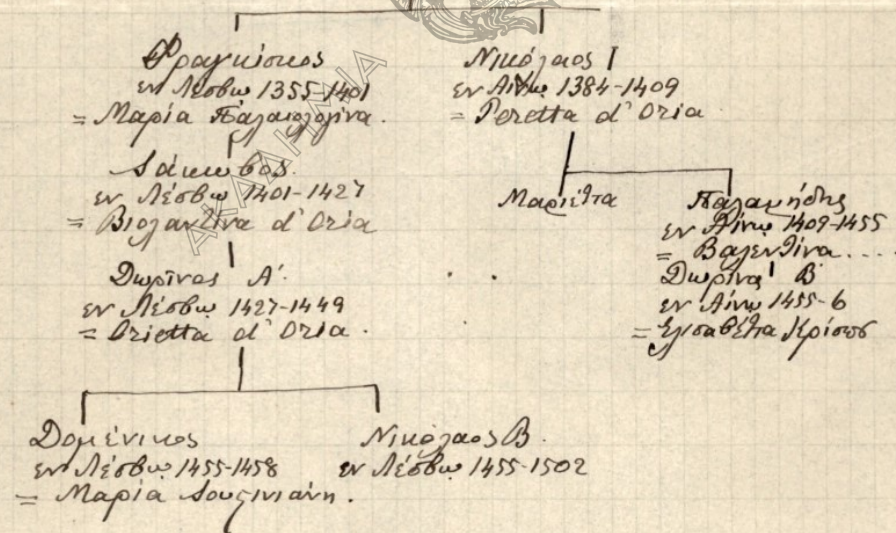 Φραγκίσκος
εν Λέσβω 1355-1401
= Μαρία Παλαιολογίνα.
Ιάκωβος.
εν Λέσβω 1401-1427
= Βιολαντίνα d' Oria
Δωρίνος Α'.
εν Λέσβω 1427-1449
= Orietta d' Oria.
Δομένικος
εν Λέσβω 1455-1458
= Μαρία Ιουστινιάνη.
Νικόλαος Β.
εν Λέσβω 1455-1502
Νικόλαος Ι
εν Αίνω 1384-1409
= Peretta d' Oria
Μαριέττα
Παλαμήδης
εν Αίνω 1409-1455
= Βαλεντίνα....
Δωρίνος Β
εν Αίνω 1455-6
= Ελισαβέττα Κρίσπο
ΑΚΑΔΗΜΙΑ